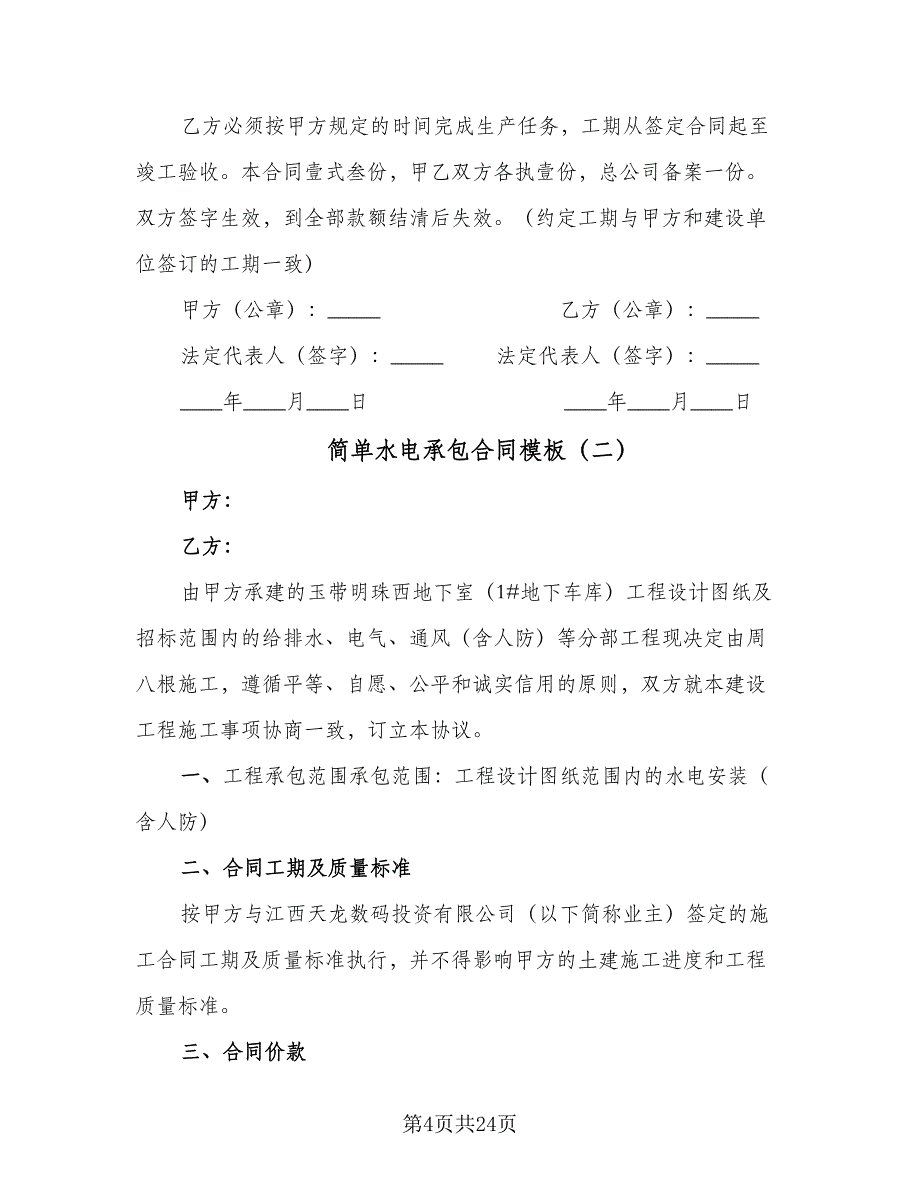 乙方必须按甲方规定的时间完成生产任务，工期从签定合同起至
竣工验收。本合同壹式叁份，甲乙双方各执壹份，总公司备案一份。
双方签字生效，到全部款额结清后失效。（约定工期与甲方和建设单
位签订的工期一致）
甲方（公章）：_____ 乙方（公章）：_____
法定代表人（签字）：_____ 法定代表人（签字）：_____
____年____月____日 ____年____月____日
简单水电承包合同模板（二）
甲方：
乙方：
由甲方承建的玉带明珠西地下室（1#地下车库）工程设计图纸及
招标范围内的给排水、电气、通风（含人防）等分部工程现决定由周
八根施工，遵循平等、自愿、公平和诚实信用的原则，双方就本建设
工程施工事项协商一致，订立本协议。
一、工程承包范围承包范围：工程设计图纸范围内的水电安装（
含人防）
二、合同工期及质量标准
按甲方与江西天龙数码投资有限公司（以下简称业主）签定的施
工合同工期及质量标准执行，并不得影响甲方的土建施工进度和工程
质量标准。
三、合同价款
第4页共24页